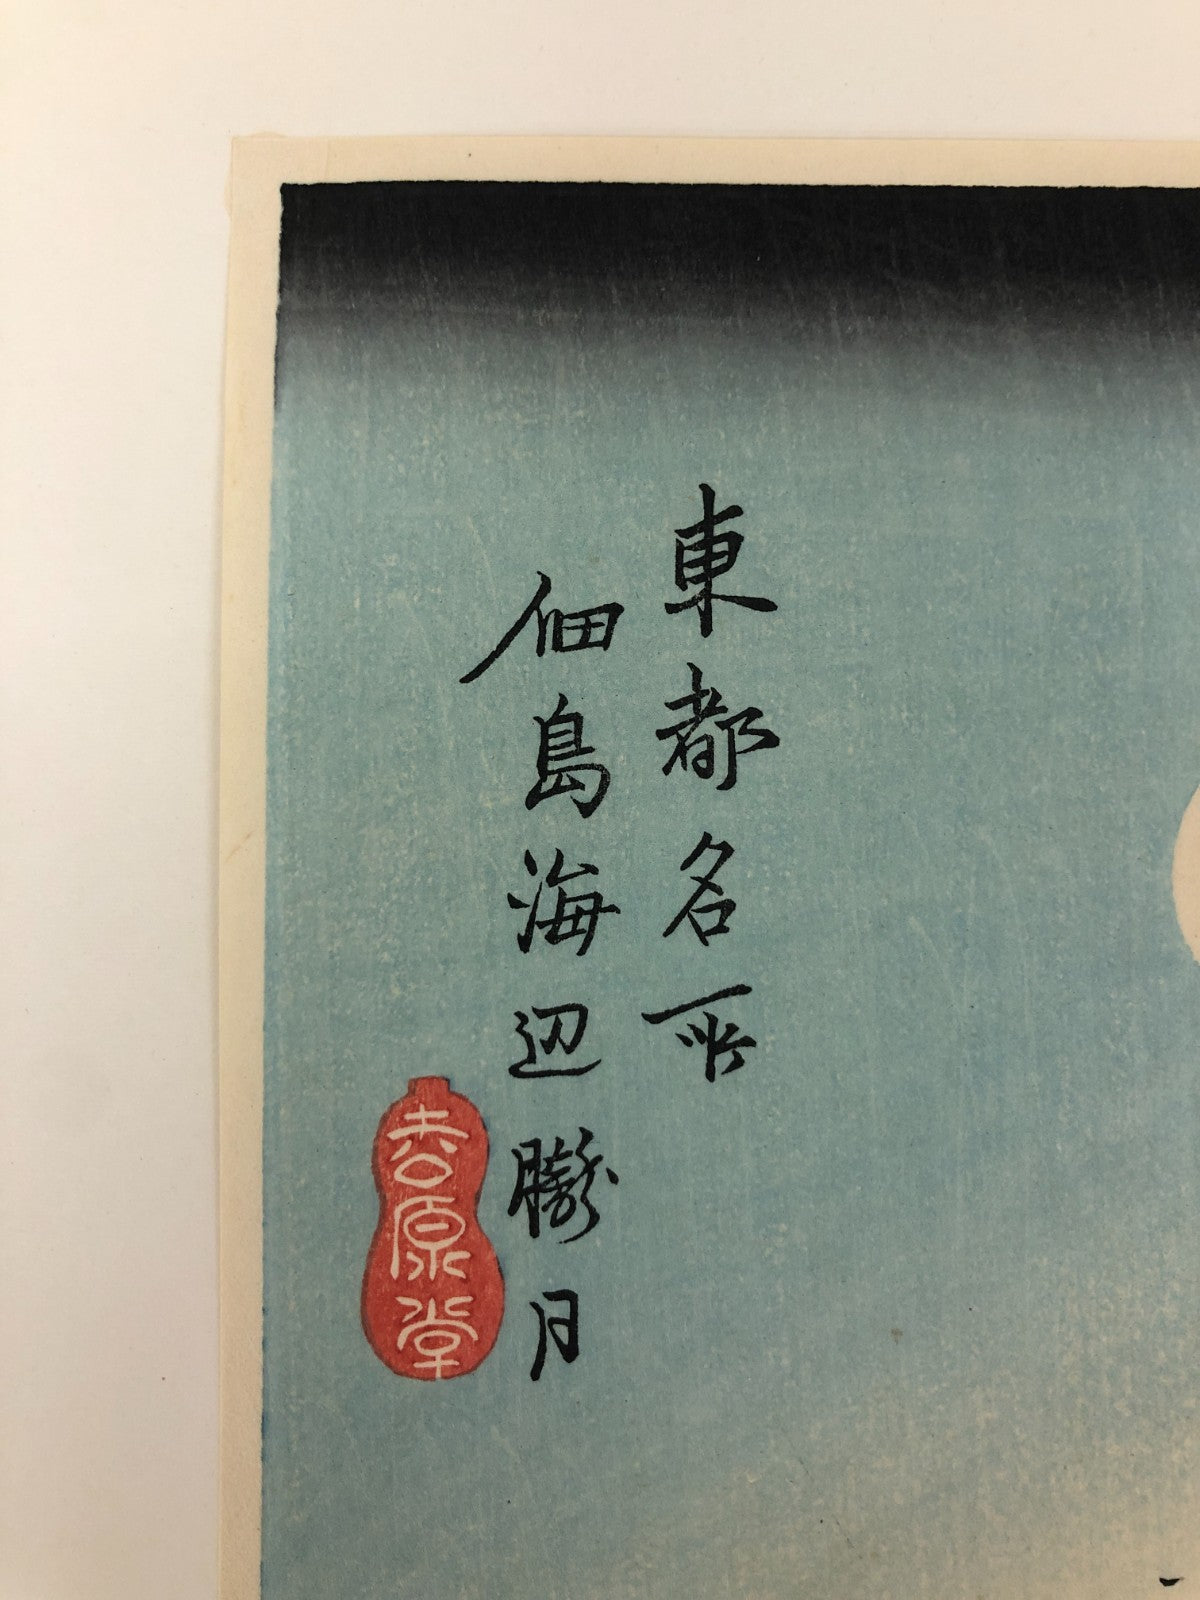 東都名所
佃島海辺朧月
原堂